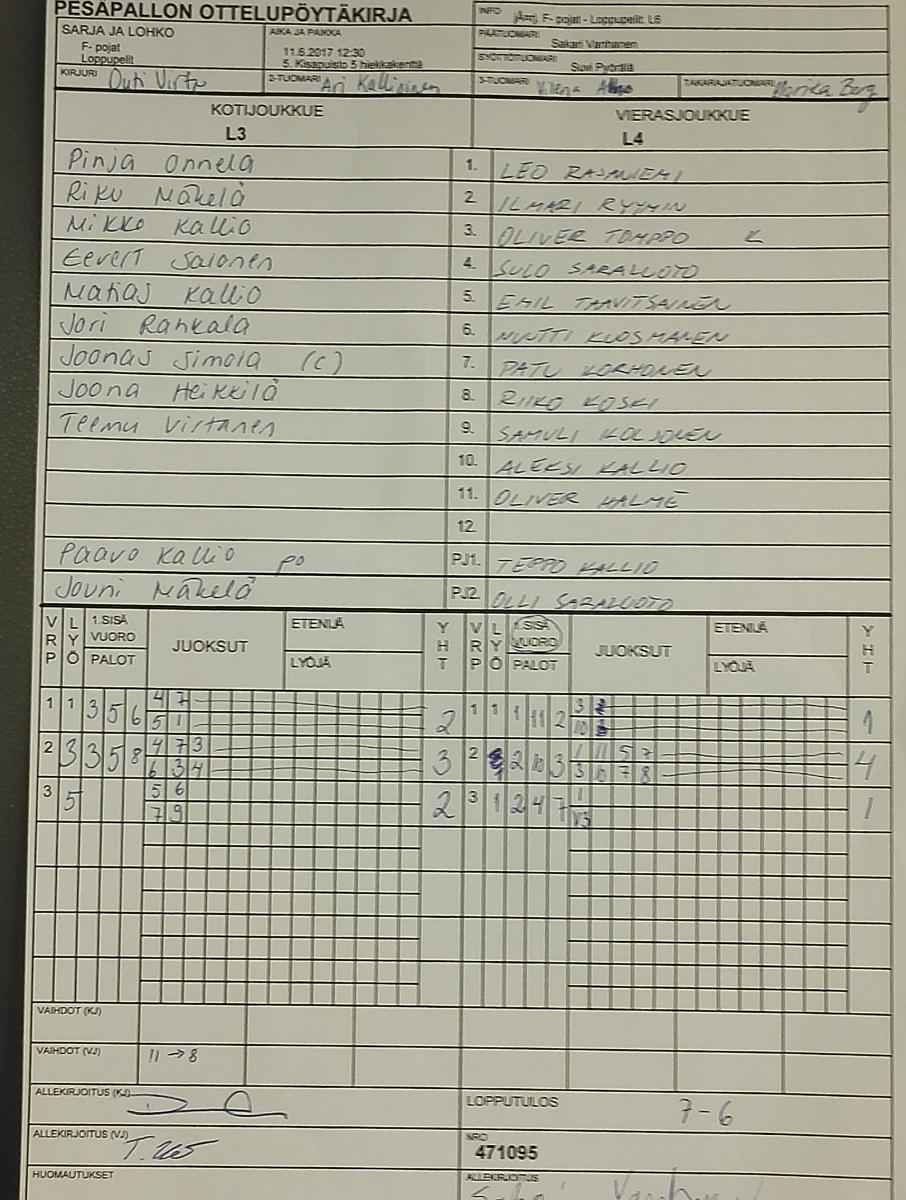 PESÄPALLON OTTELUPÖYTÄKIRJA
INFO Järj. F- pojat - Loppupelit L6
SARJA JA LOHKO
F- pojat
Loppupelit
AIKA JA PAIKKA
11.6.2017 12:30
5. Kisapuisto 5 hiekkakenttä
PÄÄTUOMARI
Sakari Vanhanen
SYÖTTÖTUOMARI
Suvi Pyörälä
KIRJURI Outi Virta
2-TUOMARI Ari Kallioinen
3-TUOMARI
TAKARAJATUOMARI Marika Berg
KOTIJOUKKUE
L3
VIERASJOUKKUE
L4
Pinja Onnela 1. LEO RAJANIEMI
Riku Mäkelä 2 ILMARI RYYMIN
Mikko Kallio 3. OLIVER TOMPPO
Eevert Salonen 4. SULO SARALUOTO
Matias Kallio 5. EMIL TAAVITSAINEN
Jori Rankala 6. NUUTTI KUOSMANEN
Joonas Simola (c) 7. PATU KORHONEN
Joona Heikkilä 8. RIIKO KOSKI
Teemu Virtanen 9. SAMULI KOLJONEN
10. ALEKSI KALLIO
11. OLIVER HALME
12
Paavo Kallio po PJ1. TEPPO KALLIO
Jouni Mäkelä PJ2. OLLI SARALUOTO
VRP LYÖ 1.SISÄ VUORO PALOT JUOKSUT ETENIJÄ LYÖJÄ YHT VRP LYÖ 1.SISÄ VUORO PALOT JUOKSUT ETENIJÄ LYÖJÄ YHT
1 1 3 5 6 4 7 2 1 1 1 11 2 3 1
5 1 10
2 3 3 5 8 4 7 3 3 2 2 10 3 1 11 5 7 4
6 3 4 3 10 7 8
3 5 5 6 2 3 1 2 4 7 1 1
7 9 V3
VAIHDOT (KJ)
VAIHDOT (VJ) 11 → 8
ALLEKIRJOITUS (KJ)
LOPPUTULOS 7-6
ALLEKIRJOITUS (VJ)
NRO
471095
HUOMAUTUKSET
ALLEKIRJOITUS